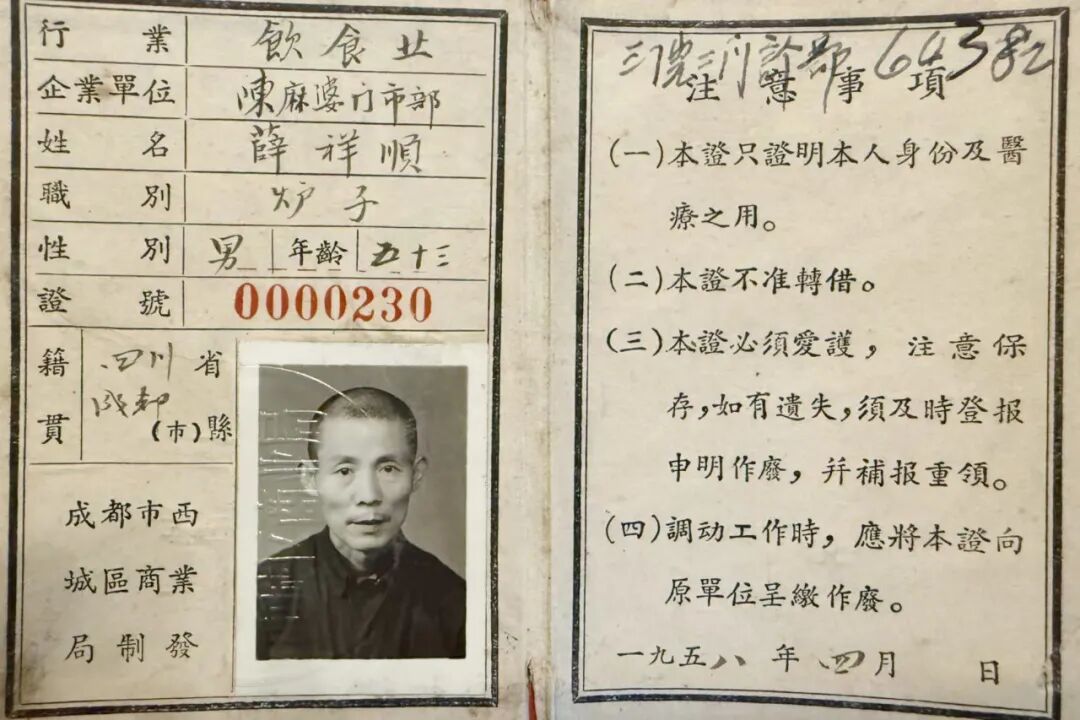 行業 飲食业
企業單位 陳麻婆门市部
姓名 薛祥順
職別 炉子
性別 男 年齡 五十三
證號 0000230
籍貫 四川省
成都(市)縣
成都市西
城區商業
局制發
三门診部 64382
注意事項
(一)本證只證明本人身份及醫
療之用。
(二)本證不准轉借。
(三)本證必須愛護，注意保
存，如有遺失，須及時登报
申明作廢，并補报重領。
(四)調动工作時，應將本證向
原單位呈繳作廢。
一九五八年四月 日